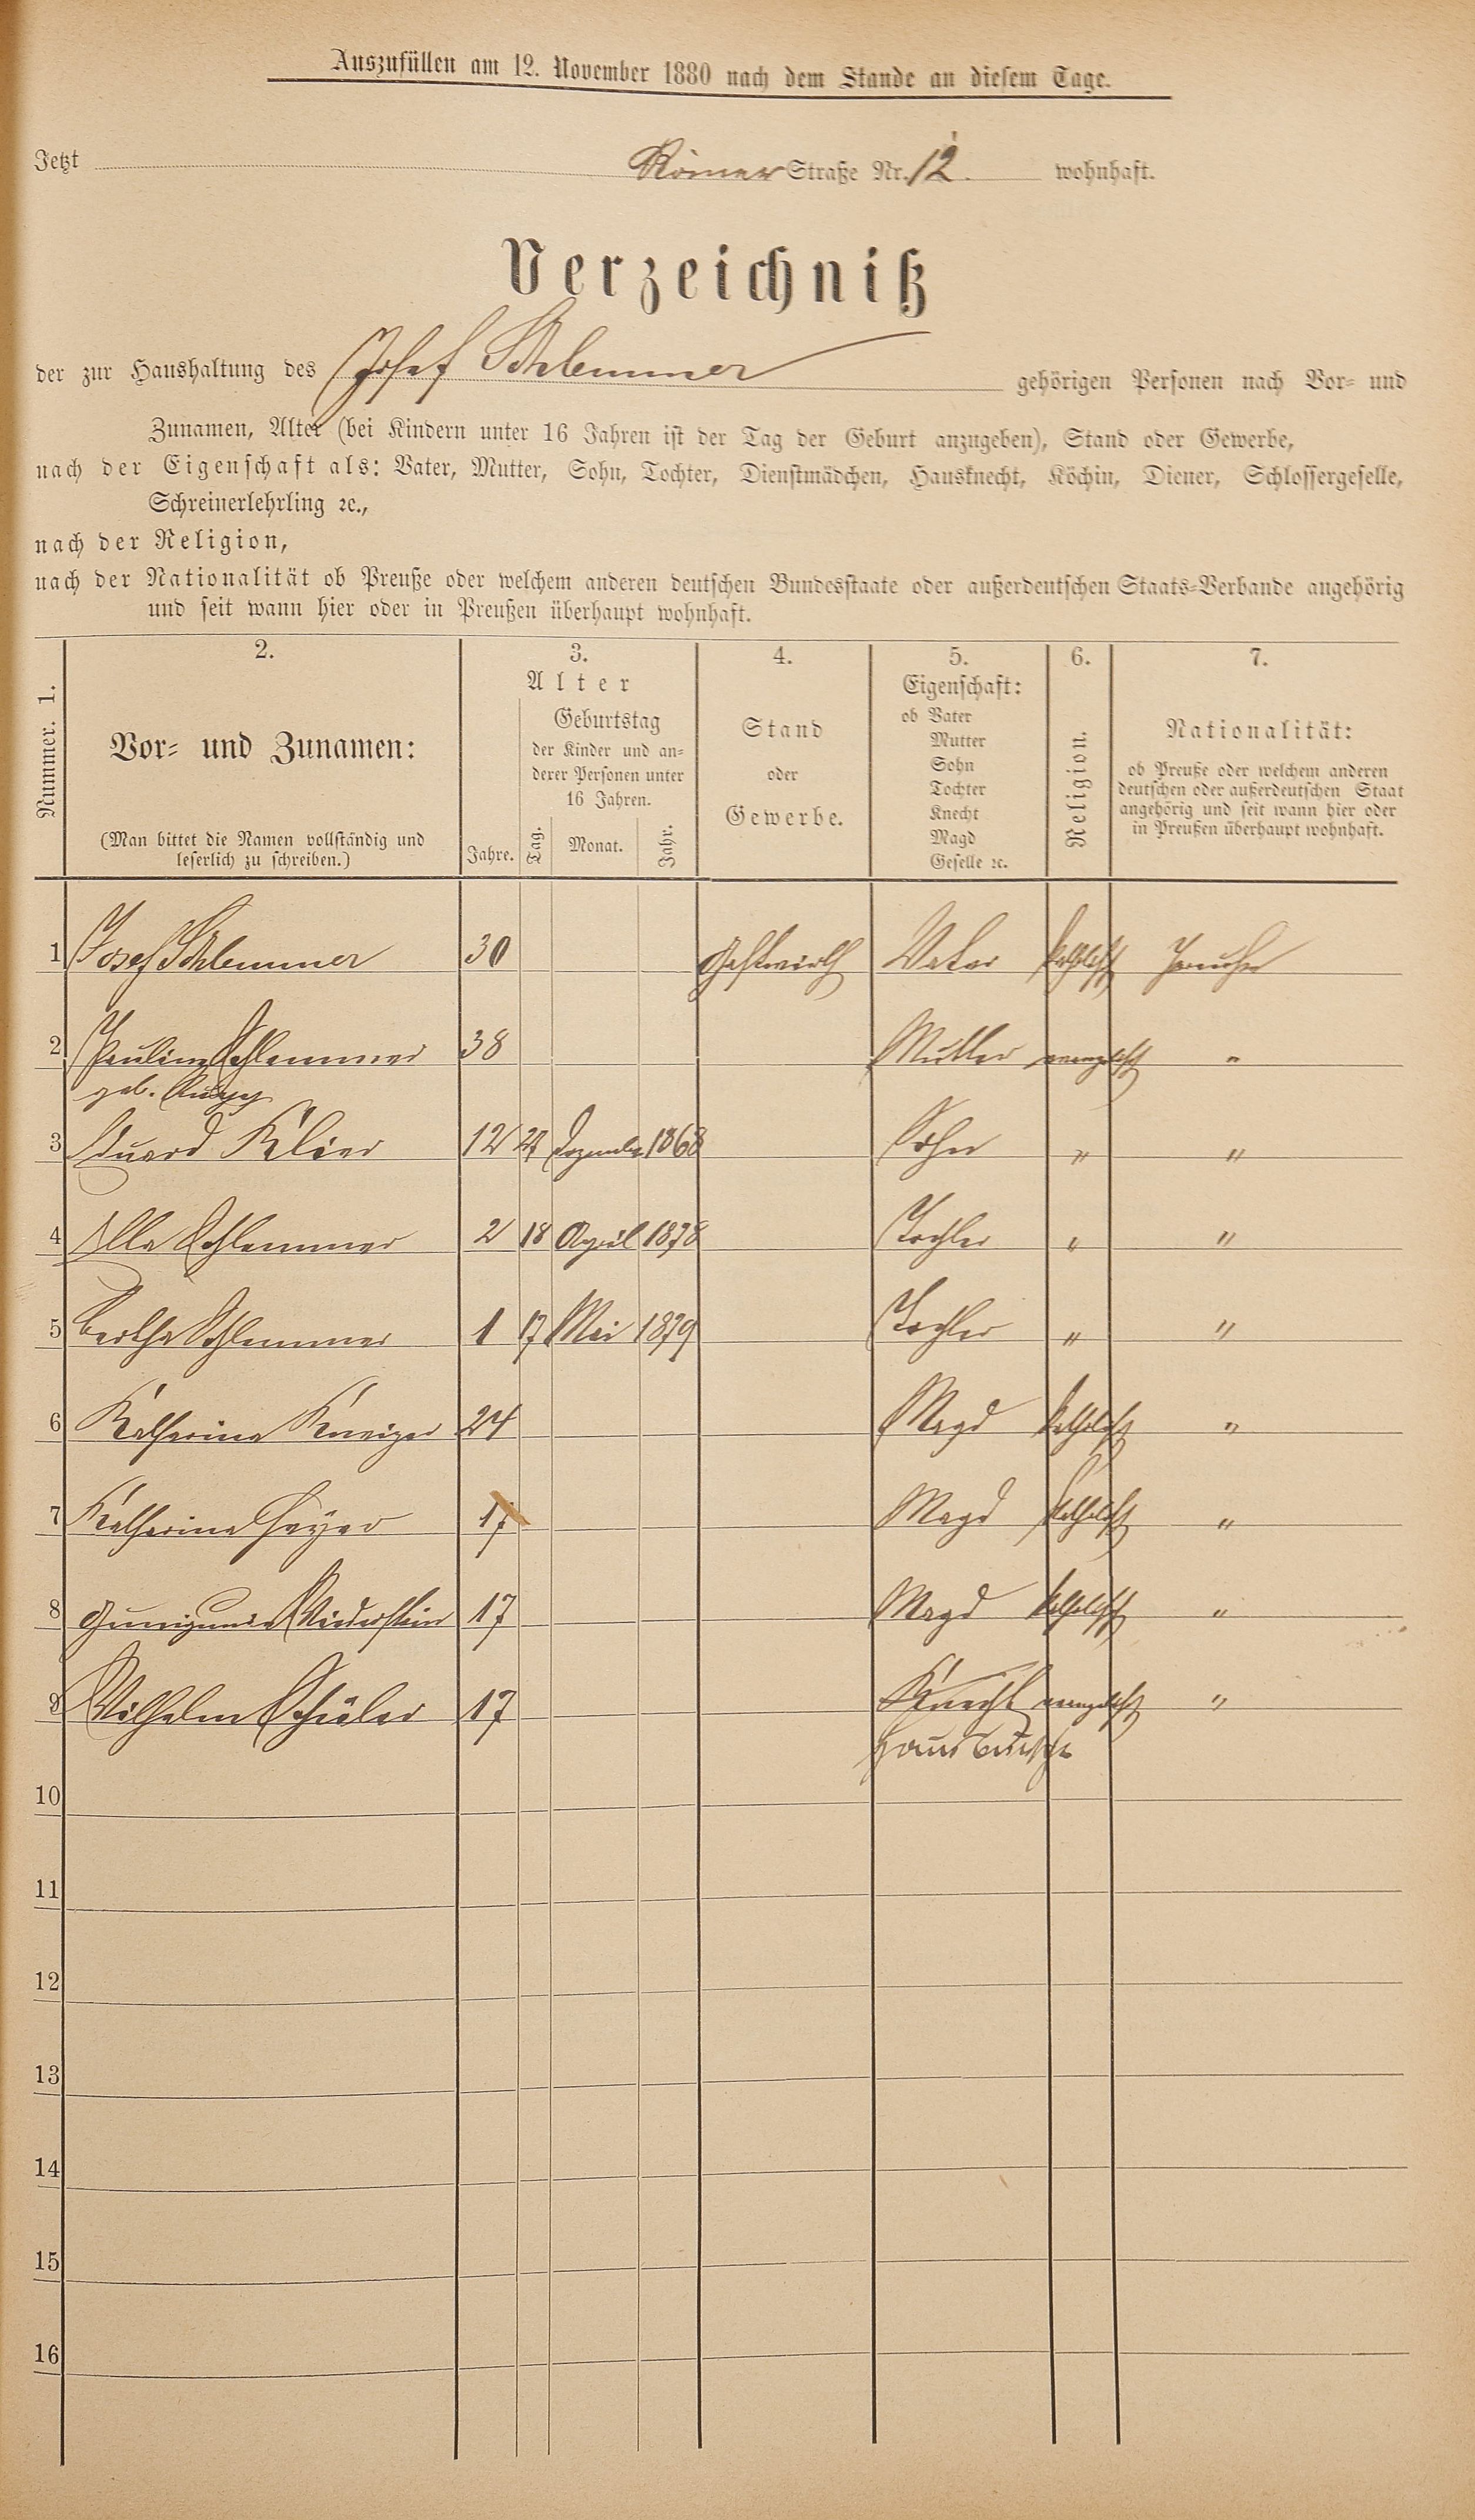 Auszufüllen am 12. November 1880 nach dem Stande an diesem Tage.
Jetzt Römer Straße Nr. 12. wohnhaft.
Verzeichniß
der zur Haushaltung des Josef Schlemmer gehörigen Personen nach Vor- und
Zunamen, Alter (bei Kindern unter 16 Jahren ist der Tag der Geburt anzugeben), Stand oder Gewerbe,
nach der Eigenschaft als: Vater, Mutter, Sohn, Tochter, Dienstmädchen, Hausknecht, Köchin, Diener, Schlossergeselle,
Schreinerlehrling ꝛc.,
nach der Religion,
nach der Nationalität ob Preuße oder welchem anderen deutschen Bundesstaate oder außerdeutschen Staats-Verbande angehörig
und seit wann hier oder in Preußen überhaupt wohnhaft.
Nummer. 1.
2.
Vor- und Zunamen:
(Man bittet die Namen vollständig und
leserlich zu schreiben.)
3.
Alter
Geburtstag
der Kinder und an-
derer Personen unter
16 Jahren.
Jahre. Tag. Monat. Jahr.
4.
Stand
oder
Gewerbe.
5.
Eigenschaft:
ob Vater
Mutter
Sohn
Tochter
Knecht
Magd
Geselle ꝛc.
6.
Religion.
7.
Nationalität:
ob Preuße oder welchem anderen
deutschen oder außerdeutschen Staat
angehörig und seit wann hier oder
in Preußen überhaupt wohnhaft.
1 Josef Schlemmer 30 Gastwirth Vater katholisch Preuße
2 Pauline Schlemmer 38 Mutter evangelisch "
geb.
3 Eduard Klier 12 Dezember 1868 Sohn " "
4 Ella Schlemmer 2 18 April 1878 Tochter " "
5 Bertha Schlemmer 1 17 Mai 1879 Tochter " "
6 Katharina 24 Magd katholisch "
7 Katharina 17 Magd katholisch "
8 17 Magd katholisch "
9 Wilhelm Schüler 17 Knecht evangelisch "
Hausbursche
10
11
12
13
14
15
16